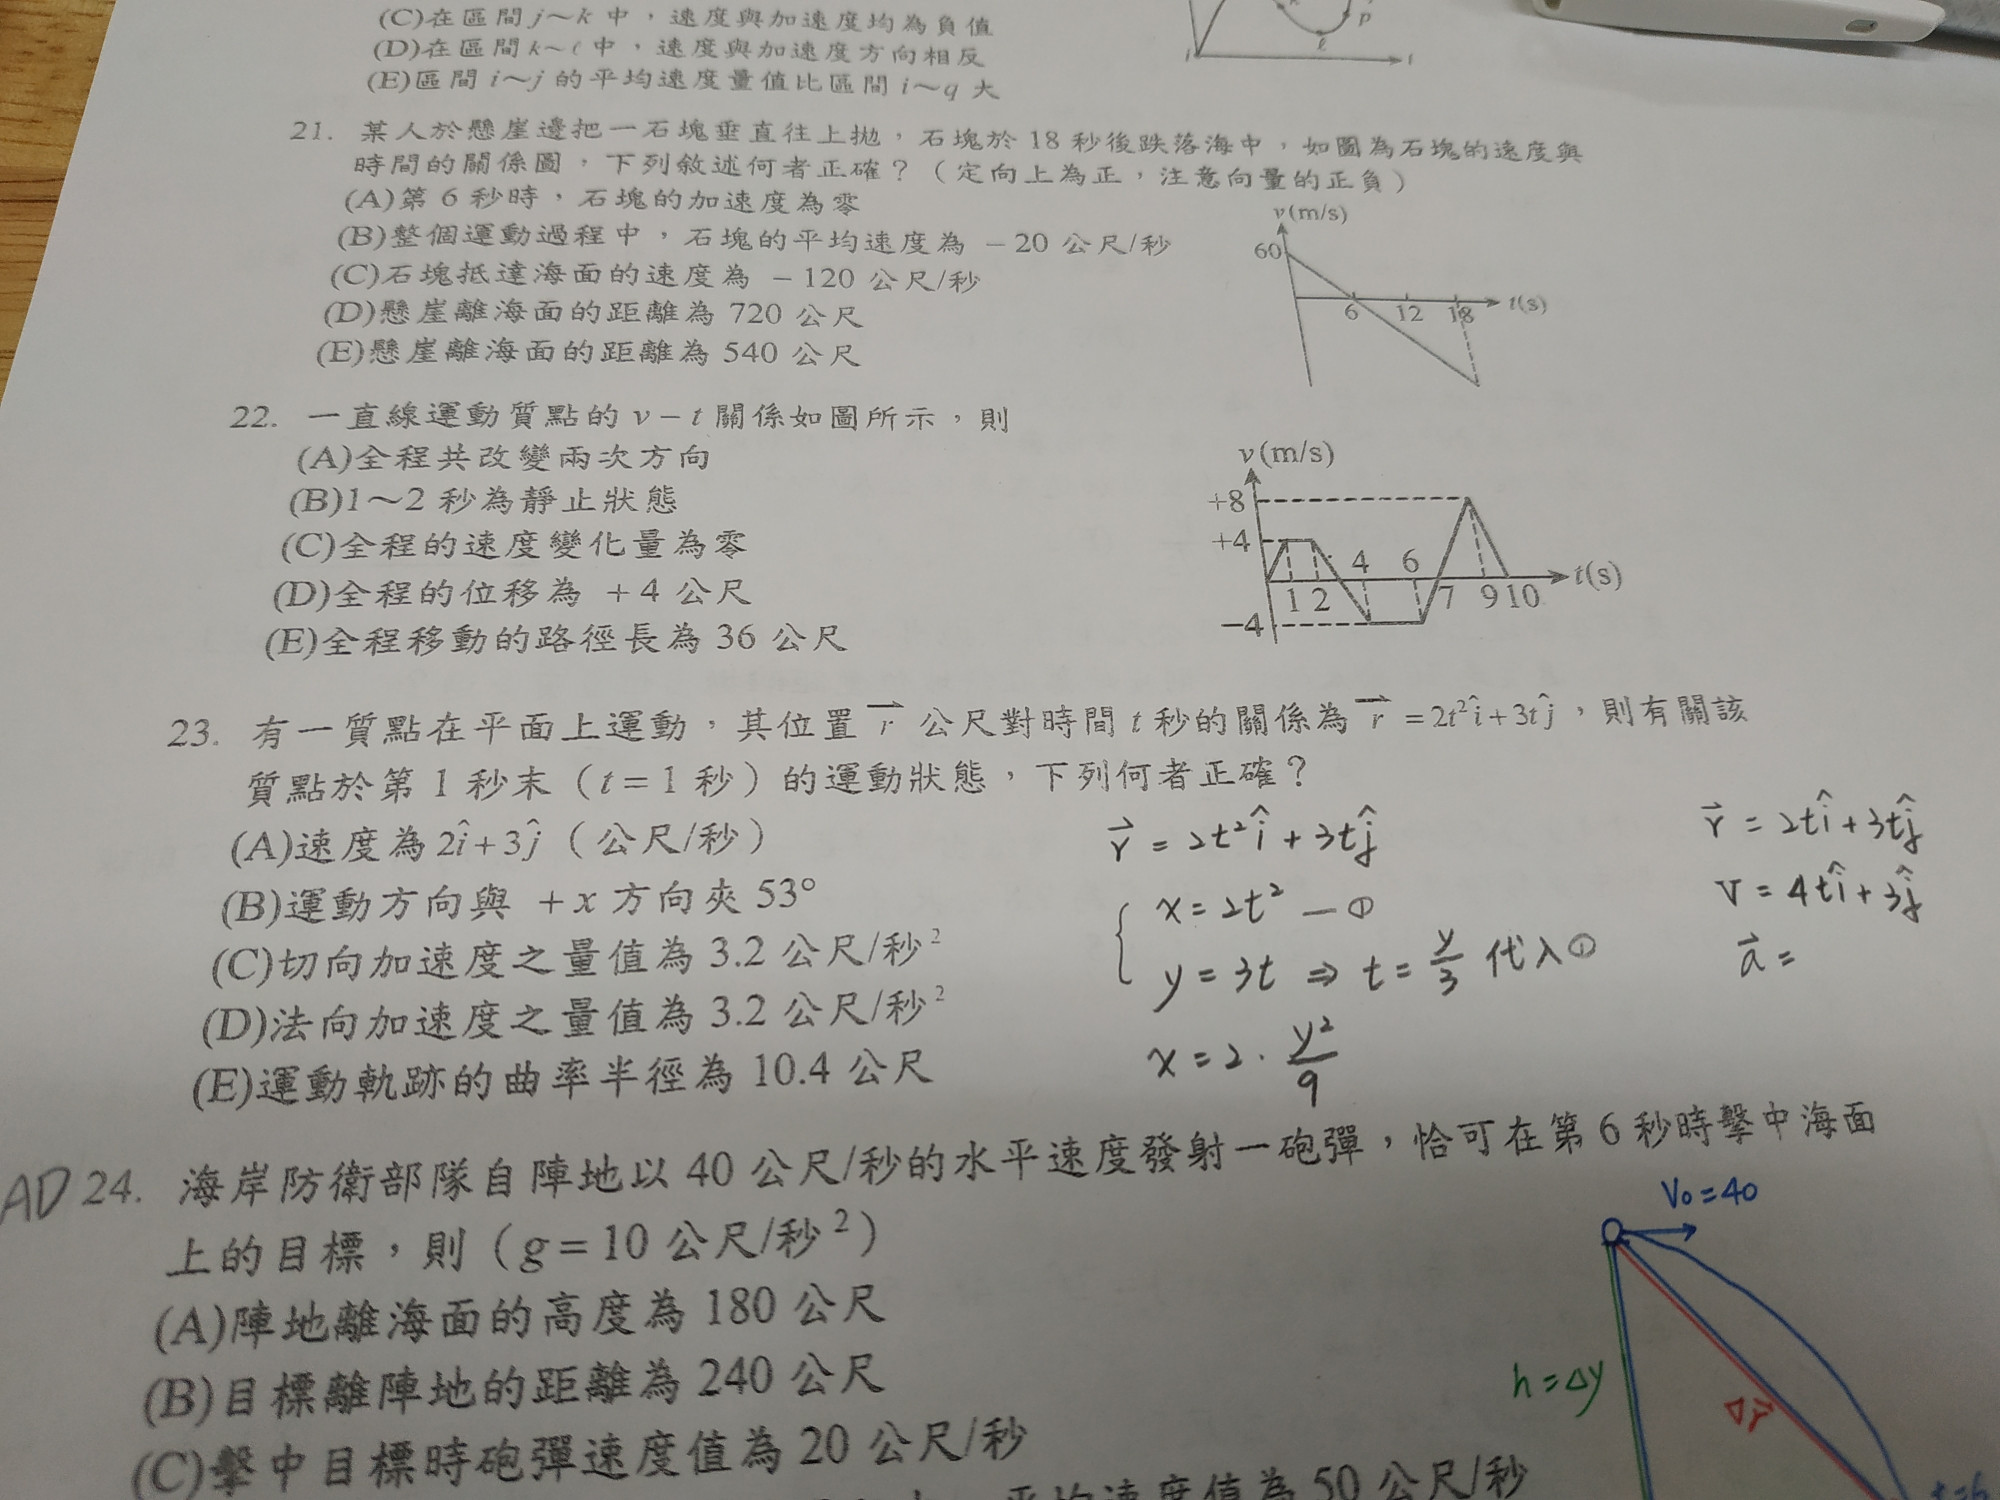 (C)在區間 j～k 中，速度與加速度均為負值
(D)在區間 k～ℓ 中，速度與加速度方向相反
(E)區間 i～j 的平均速度量值比區間 i～q 大
ℓ
p
21. 某人於懸崖邊把一石塊垂直往上拋，石塊於 18 秒後跌落海中，如圖為石塊的速度與
時間的關係圖，下列敘述何者正確？（定向上為正，注意向量的正負）
(A)第 6 秒時，石塊的加速度為零
(B)整個運動過程中，石塊的平均速度為 −20 公尺/秒
(C)石塊抵達海面的速度為 −120 公尺/秒
(D)懸崖離海面的距離為 720 公尺
(E)懸崖離海面的距離為 540 公尺
v(m/s)
60
6 12 18 t(s)
22. 一直線運動質點的 v−t 關係如圖所示，則
(A)全程共改變兩次方向
(B)1～2 秒為靜止狀態
(C)全程的速度變化量為零
(D)全程的位移為 +4 公尺
(E)全程移動的路徑長為 36 公尺
v(m/s)
+8
+4
4 6
t(s)
1 2 7 9 10
−4
23. 有一質點在平面上運動，其位置 r⃗ 公尺對時間 t 秒的關係為 r⃗ = 2t²î + 3tĵ，則有關該
質點於第 1 秒末（t = 1 秒）的運動狀態，下列何者正確？
(A)速度為 2î + 3ĵ（公尺/秒）
(B)運動方向與 +x 方向夾 53°
(C)切向加速度之量值為 3.2 公尺/秒²
(D)法向加速度之量值為 3.2 公尺/秒²
(E)運動軌跡的曲率半徑為 10.4 公尺
r⃗ = 2t²î + 3tĵ
x = 2t² — ①
y = 3t ⇒ t = y/3 代入①
x = 2 · y²/9
r⃗ = 2tî + 3tĵ
v = 4tî + 3ĵ
a⃗ =
AD 24. 海岸防衛部隊自陣地以 40 公尺/秒的水平速度發射一砲彈，恰可在第 6 秒時擊中海面
上的目標，則（g = 10 公尺/秒²）
(A)陣地離海面的高度為 180 公尺
(B)目標離陣地的距離為 240 公尺
(C)擊中目標時砲彈速度值為 20 公尺/秒
平均速度值為 50 公尺/秒
V₀ = 40
h = Δy
Δr⃗
t=6